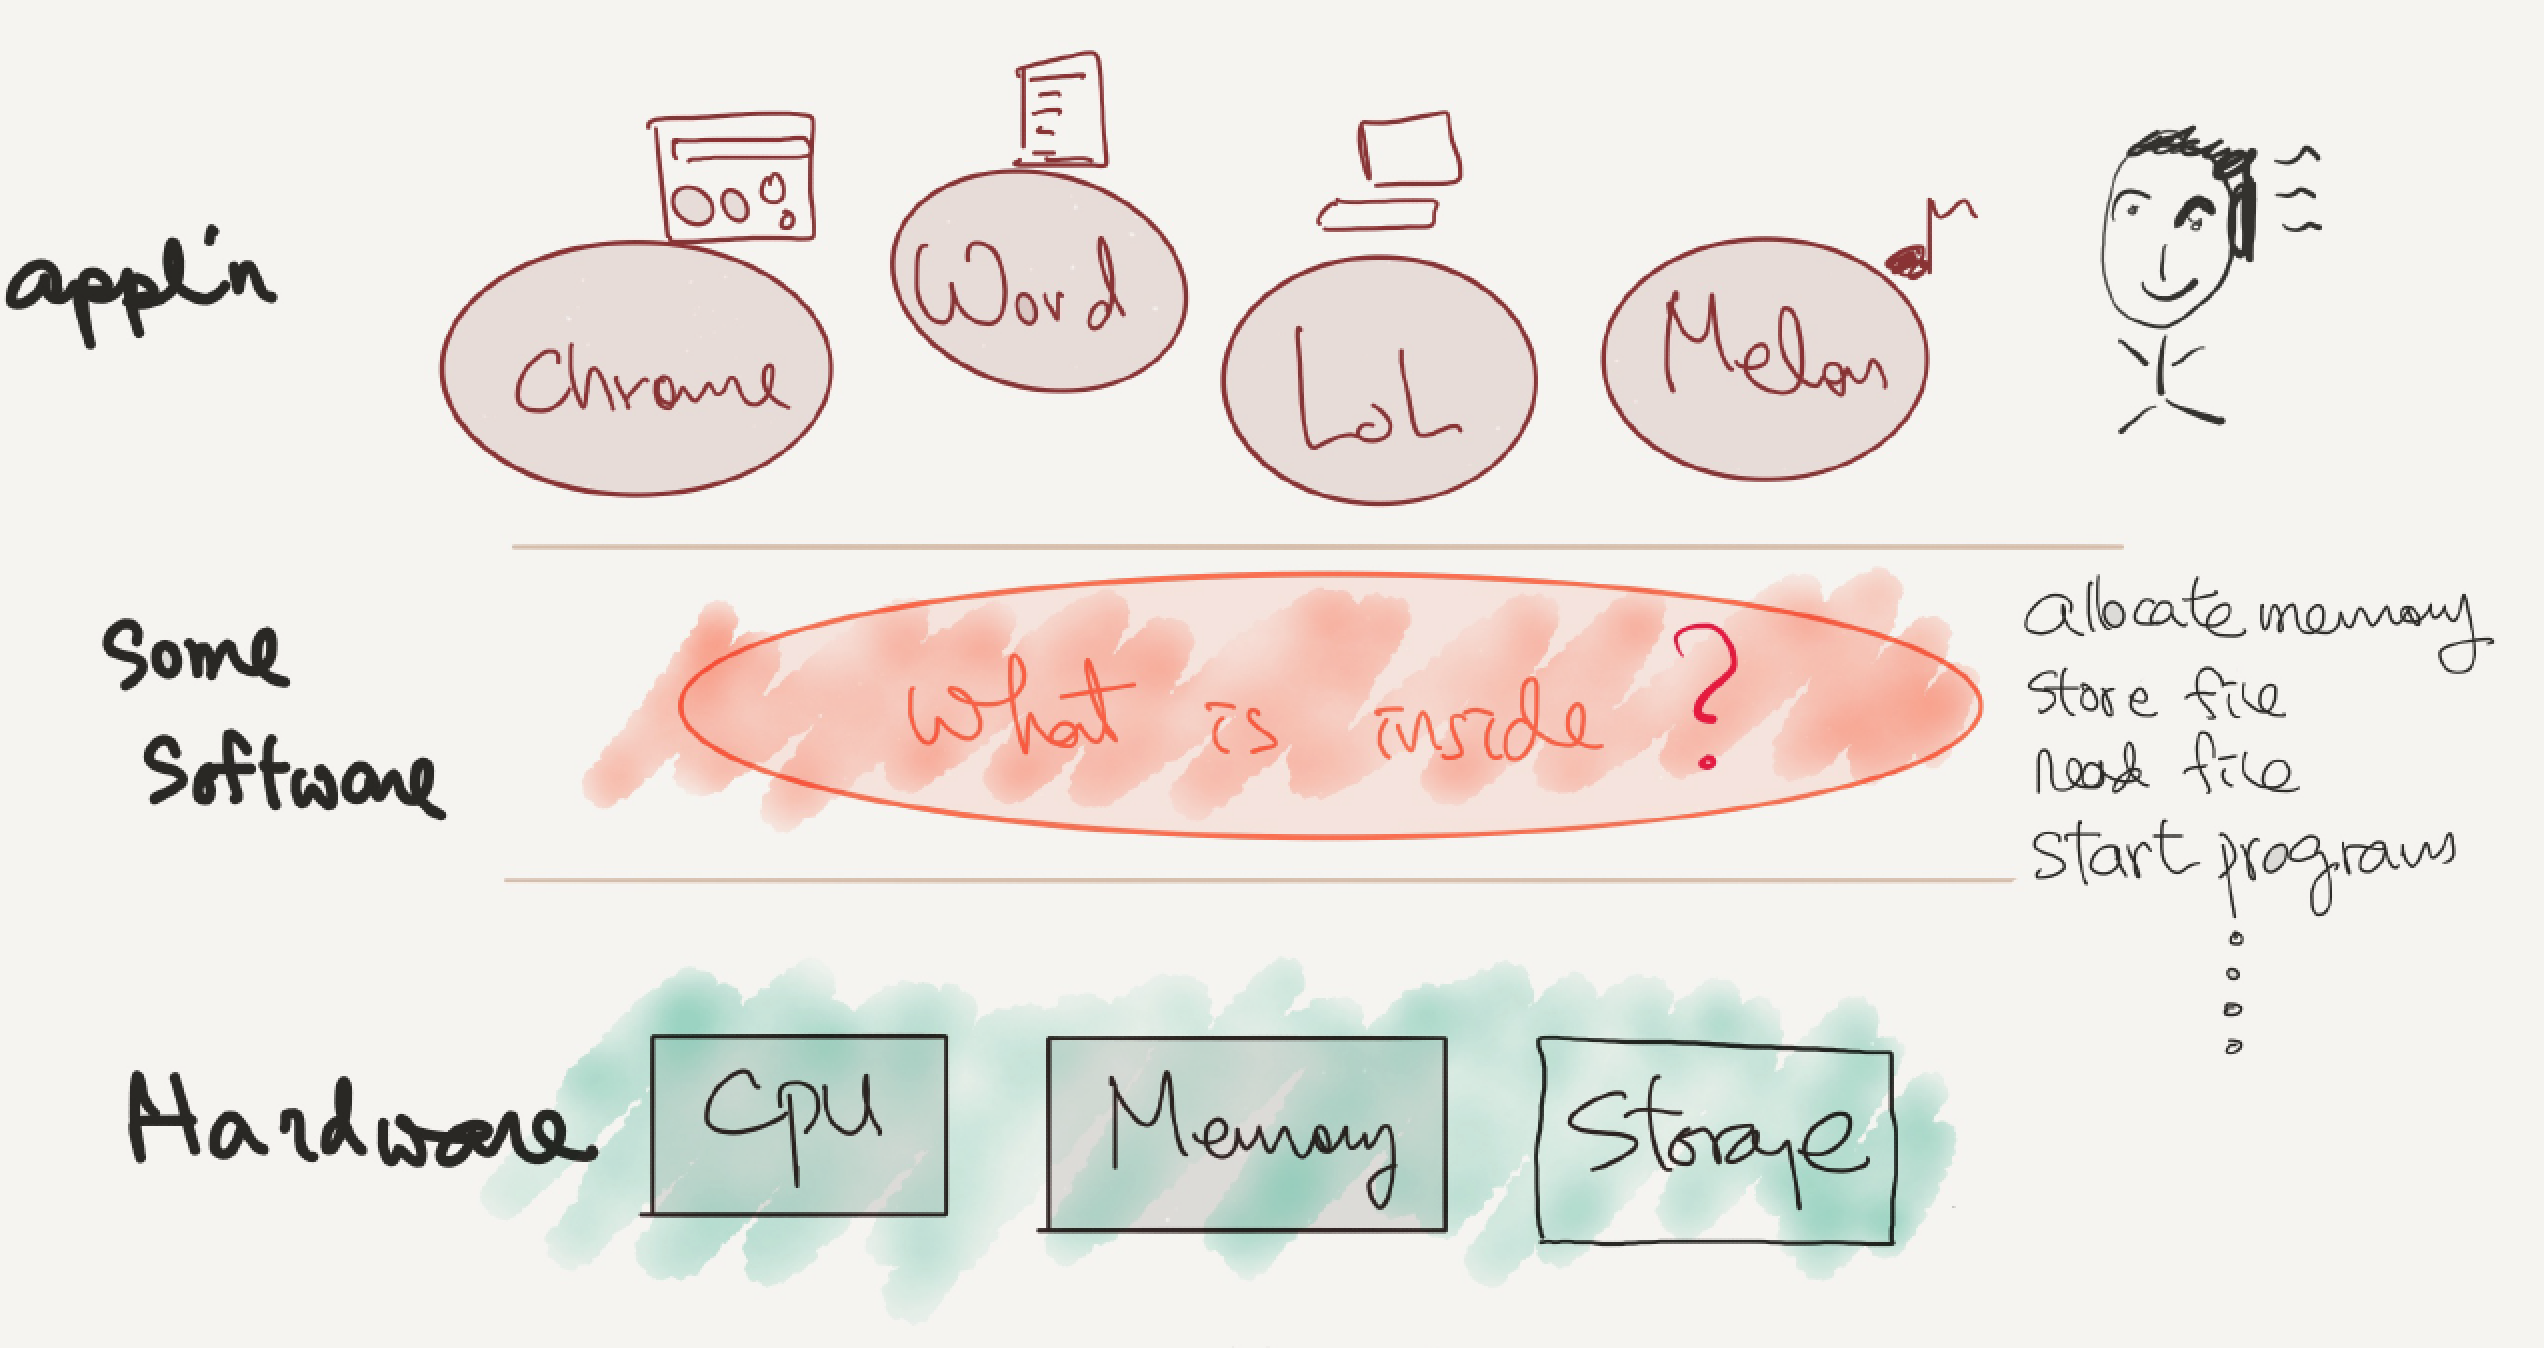 appl'n
Chrome
Word
LoL
Melon
Some
Software
What is inside ?
allocate memory
store file
read file
start programs
Hardware
CPU
Memory
Storage